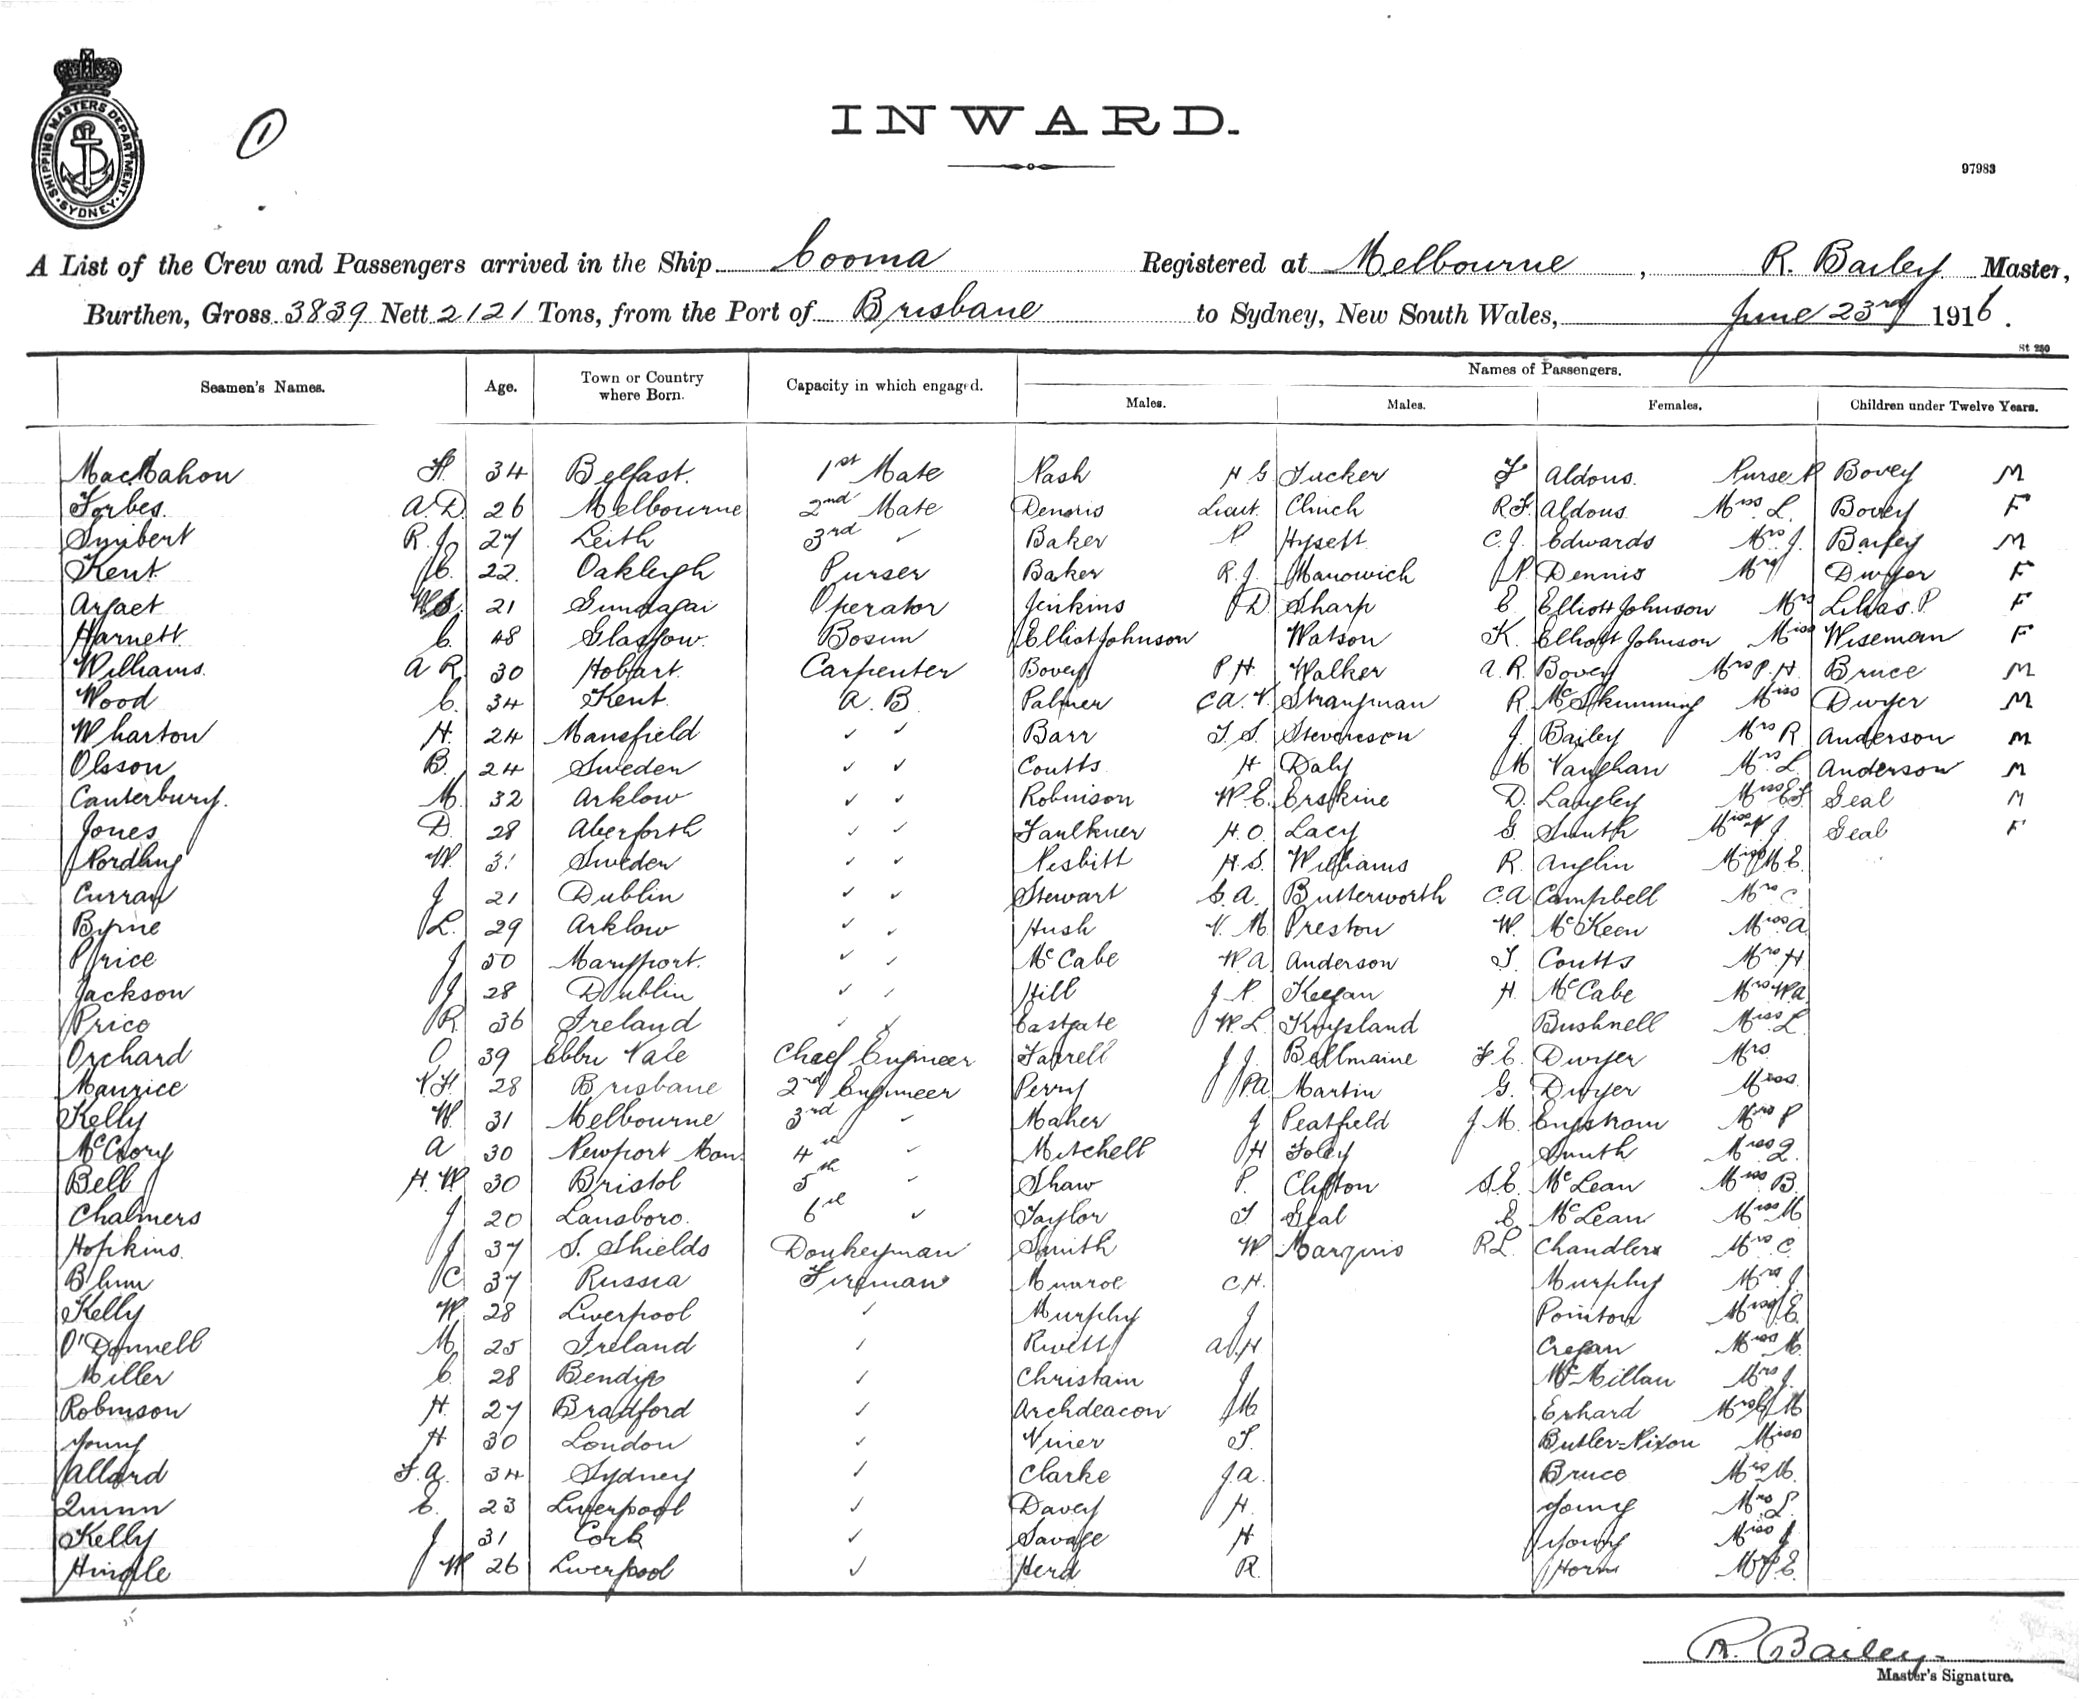 SHIPPING MASTERS DEPARTMENT. SYDNEY.
1
INWARD.
97983
A List of the Crew and Passengers arrived in the Ship Cooma Registered at Melbourne, R. Bailey Master,
Burthen, Gross 3839 Nett 2121 Tons, from the Port of Brisbane to Sydney, New South Wales, June 23rd 1916.
St 280
Seamen's Names. Age. Town or Country where Born. Capacity in which engaged. Names of Passengers.
Males. Males. Females. Children under Twelve Years.
MacMahon H. 34 Belfast. 1st Mate Nash H G Tucker F Aldous. Nurse Bovey M
Forbes. A.D. 26 Melbourne 2nd Mate Dennis Lieut. Clinch R.F. Aldous Miss L. Bovey F
Smibert R.J. 27 Leith 3rd ✓ Baker P Hysett C.J. Edwards Mrs J. Bailey M
Kent C. 22. Oakleigh Purser Baker R.J. Manowich N. Dennis Mrs Dwyer F
Argaet 21 Gundagai Operator Jenkins D Sharp E Elliott Johnson Mrs Lihas. P. F
Harnett C. 48 Glasgow. Bosun Elliot Johnson Watson K. Elliott Johnson Miss Wiseman F
Williams. A R. 30 Hobart. Carpenter Bovey P H Walker A.R. Bovey Mrs P.H Bruce M
Wood C. 34 Kent. A. B. Palmer C A. V. Strangman R. McSkimming Miss Dwyer M
Wharton H. 24 Mansfield ✓ ✓ Barr T.S. Stevenson J. Bailey Mrs R Anderson M
Olsson B. 24 Sweden ✓ ✓ Coutts H Daly M Vaughan Mrs. L. Anderson M
Canterbury. M. 32 Arklow ✓ ✓ Robinson W.E. Erskine D. Langley Miss Geal M
Jones D. 28 Aberforth ✓ ✓ Faulkner H.O. Lacy G. Smith Miss Geal F
Nordling W. 31 Sweden ✓ ✓ Nesbitt H.S. Williams R. Anglin Miss M.E.
Curran J 21 Dublin ✓ ✓ Stewart G.A. Butterworth C.A Campbell Mrs C.
Byrne L. 29 Arklow ✓ ✓ Hush V. M Preston W. McKeen Miss A
Price J 50 Maryport. ✓ ✓ McCabe W.A. Anderson T. Coutts Mrs H
Jackson J 28 Dublin ✓ ✓ Hill J P. Keegan H. McCabe Mrs W.A
Price R. 36 Ireland ✓ ✓ Eastgate W.L. Kingsland Bushnell Miss L.
Orchard O. 39 Ebbw Vale Chief Engineer Farrell J.J. Bellmaine F.E. Dwyer Mrs.
Maurice V.H. 28 Brisbane 2nd Engineer Perry P.A. Martin G. Dwyer Miss.
Kelly W. 31 Melbourne 3rd ✓ Maher J Peatfield J.M. Engstrom Mrs P
McCrory A 30 Newport Mon. 4th ✓ Mitchell H Foley Smith Miss
Bell H.W. 30 Bristol 5th ✓ Shaw P. Clifton S.E. McLean Miss B.
Chalmers J 20 Lansboro. 6th ✓ Taylor T Geal E McLean Miss M
Hopkins J 37 S. Shields Donkeyman Smith W Marquis R.L. Chandler Mrs C.
Blum C 37 Russia Fireman Munroe C H. Murphy Mrs J.
Kelly W. 28 Liverpool ✓ Murphy J Pointon Miss E.
O'Donnell M. 25 Ireland ✓ Rivett A.H. Cregan Miss M.
Miller C. 28 Bendigo ✓ Christain J McMillan Mrs J.
Robinson H. 27 Bradford ✓ Archdeacon M Erhard Mrs M
Young H. 30 London ✓ Viner T. Butler=Nixon Miss
Allard F.A. 34 Sydney ✓ Clarke J.A. Bruce Mrs M.
Quinn E. 23 Liverpool ✓ Davey H. Young Mrs L.
Kelly J 31 Cork ✓ Savage H Young Miss J
Hindle W 26 Liverpool ✓ Herd R. Horn E.
R. Bailey.
Master's Signature.